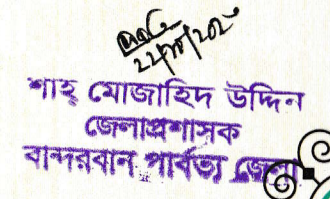 শাহ্ মোজাহিদ উদ্দিন
জেলাপ্রশাসক
বান্দরবান পার্বত্য জেলা